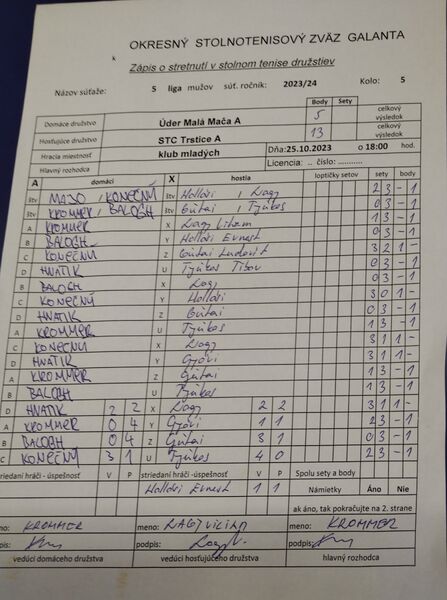 OKRESNÝ STOLNOTENISOVÝ ZVÄZ GALANTA
k
Zápis o stretnutí v stolnom tenise družstiev
Názov súťaže: 5 liga mužov súť. ročník: 2023/24 Kolo: 5
Body Sety
Domáce družstvo Úder Malá Mača A 5 celkový výsledok
Hosťujúce družstvo STC Trstice A 13 celkový výsledok
Hracia miestnosť klub mladých Dňa: 25.10.2023 o 18:00 hod.
Hlavný rozhodca Licencia: .. číslo: ...........
A domáci X hostia loptičky setov sety body
štv MAJO, KONEČNÝ štv Hollósi, Nagy 2 3 - 1
štv KROMMER, BALOGH štv Gútai, Tyukos 0 3 - 1
A KROMMER X Nagy 1 3 - 1
B BALOGH Y Hollósi Ernest 0 3 - 1
C KONEČNÝ Z Gútai Ludovít 3 2 1 -
D HNATIK U Tyukos Tibor 0 3 - 1
B BALOGH X Nagy 0 3 - 1
C KONEČNÝ Y Hollósi 3 0 1 -
D HNATIK Z Gútai 0 3 - 1
A KROMMER U Tyukos 1 3 - 1
C KONEČNÝ X Nagy 3 1 1 -
D HNATIK Y Győri 3 1 1 -
A KROMMER Z Gútai 1 3 - 1
B BALOGH U Tyukos 1 3 - 1
D HNATIK 2 2 X Nagy 2 2 3 1 1 -
A KROMMER 0 4 Y Győri 1 1 1 3 - 1
B BALOGH 0 4 Z Gútai 3 1 0 3 - 1
C KONEČNÝ 3 1 U Tyukos 4 0 2 3 - 1
triedaní hráči - úspešnosť V P striedaní hráči -úspešnosť V P Spolu sety a body
Hollósi Ernest 1 1 Námietky Áno Nie
ak áno, tak pokračujte na 2. strane
meno: KROMMER meno: NAGY meno: KROMMER
pis: podpis: podpis:
vedúci domáceho družstva vedúci hosťujúceho družstva hlavný rozhodca